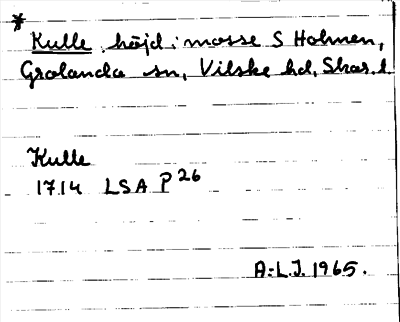 *
Kulle, höjd i mosse S Holmen,
Grolanda sn, Vilske hd, Skar. l.
Kulle
1714 LSA P 26
A-L.J. 1965.